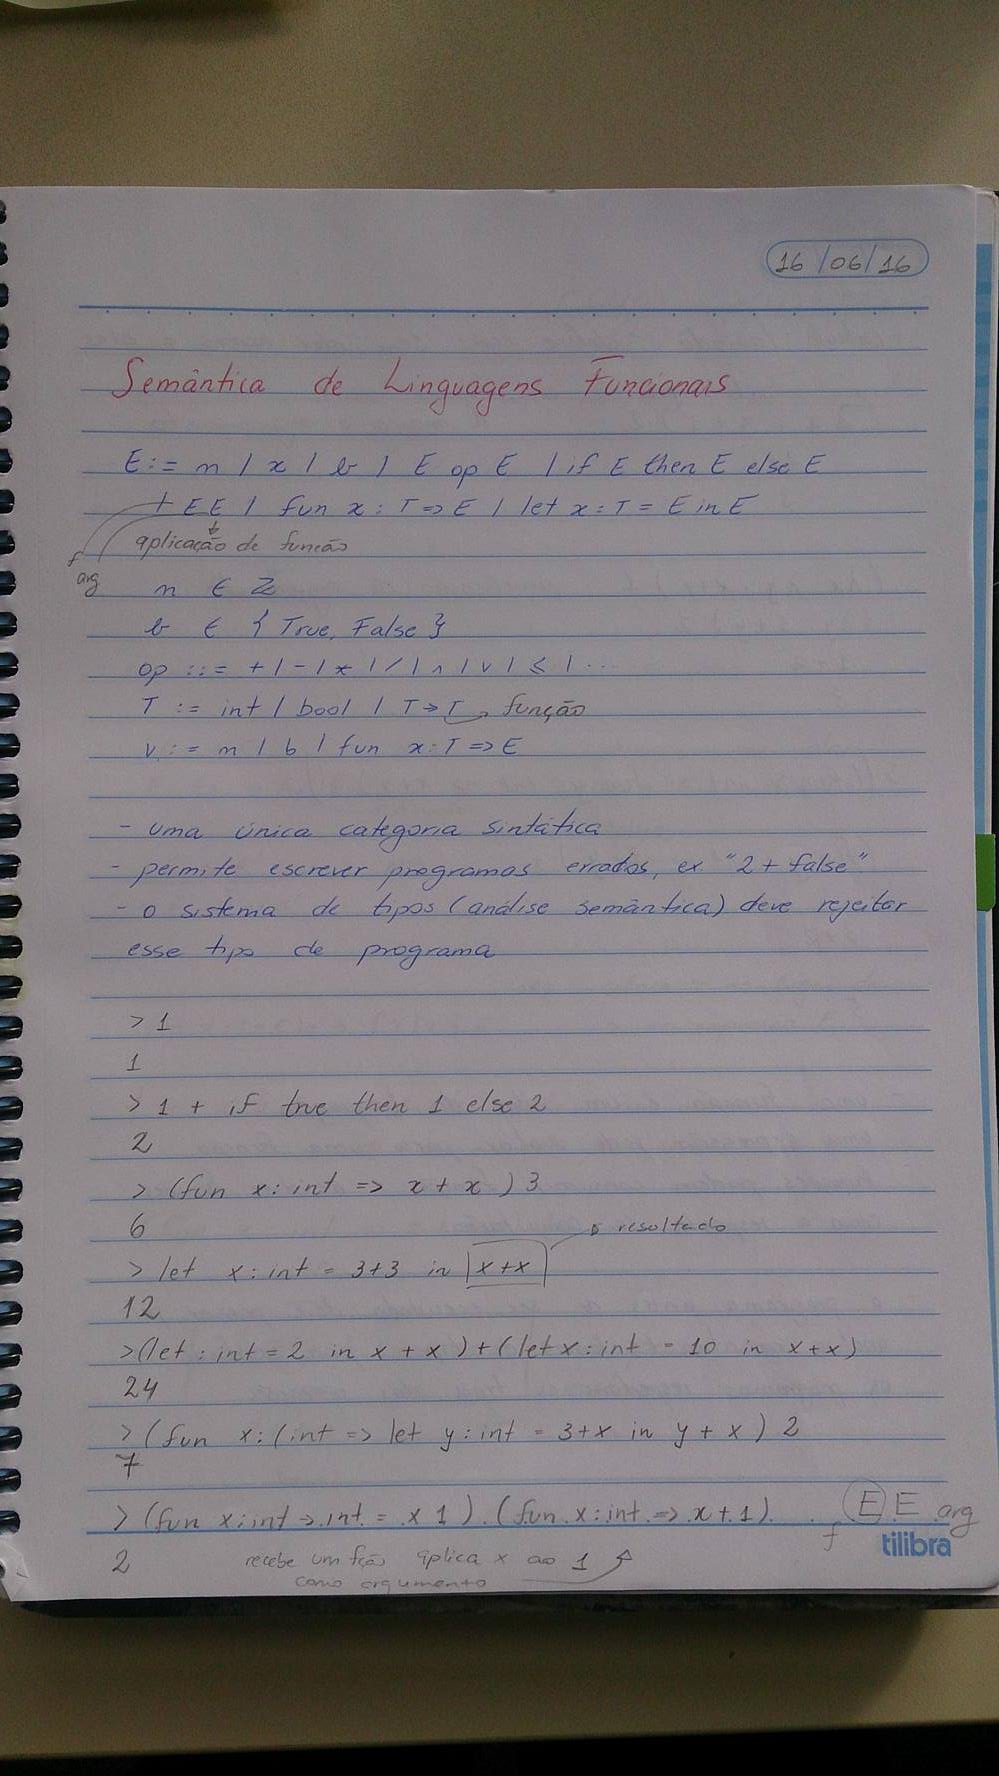 16/06/16
Semântica de Linguagens Funcionais
E := n | x | b | E op E | if E then E else E
| E E | fun x : T => E | let x : T = E in E
f
arg
aplicação de função
n ∈ ℤ
b ∈ { True, False }
op ::= + | - | * | / | ∧ | ∨ | ≤ | ...
T := int | bool | T → T função
v := n | b | fun x : T => E
- uma única categoria sintática
- permite escrever programas errados, ex. "2 + false"
- o sistema de tipos (análise semântica) deve rejeitar
esse tipo de programa
> 1
1
> 1 + if true then 1 else 2
2
> (fun x : int => x + x) 3
6
resultado
> let x : int = 3+3 in x+x
12
>(let : int = 2 in x + x) + (let x : int = 10 in x+x)
24
> (fun x : (int => let y : int = 3+x in y + x) 2
7
> (fun x : int → int = x 1) (fun x : int => x + 1)
E E arg
f
2
recebe um fção aplica x ao 1
como argumento
tilibra